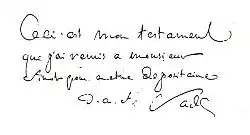 Ceci est mon testament
que j'ai remis a monsieur
pour etre depositaire
D. a. f. Sade